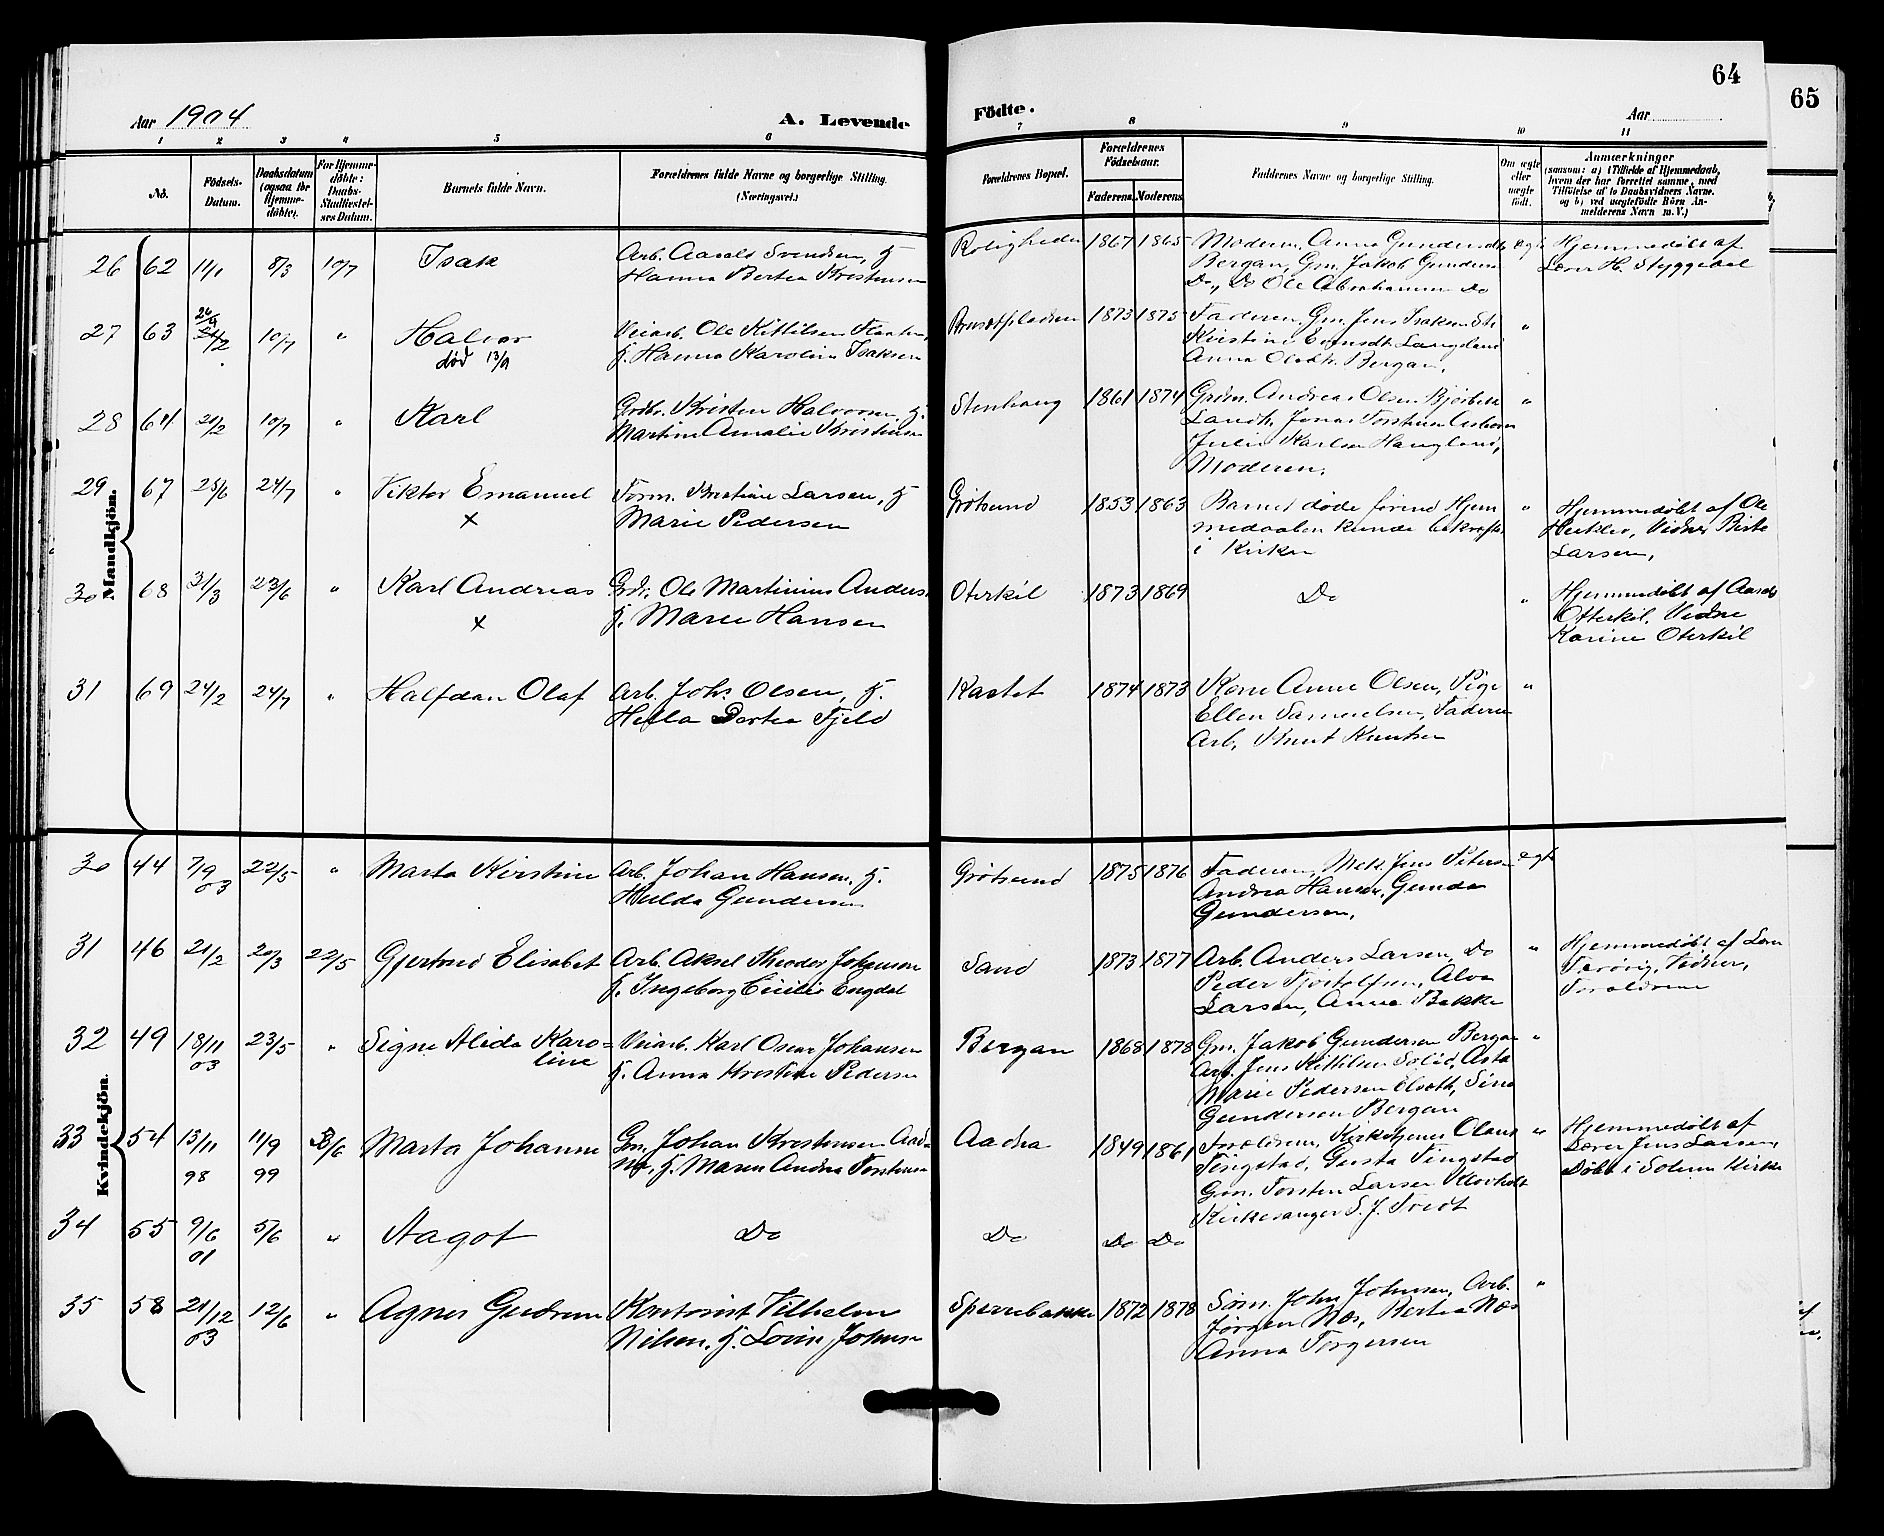 64
65
Aar 1904
A. Levende
Födte.
Aar
1 2 3 4 5 6 7 8 9 10 11
No.
Födsels-Datum.
Daabsdatum (ogsaa for Hjemme-döbte).
For Hjemme-döbte: Daabs-Stadfæstel-ses Datum.
Barnets fulde Navn.
Forældrenes fulde Navne og borgerlige Stilling.
(Næringsvei.)
Forældrenes Bopæl.
Forældrenes Födselsaar.
Faderens. Moderens.
Faddernes Navne og borgerlige Stilling.
Om ægte eller uægte födt.
Anmærkninger
(saasom: a) i Tilfælde af Hjemmedaab, hvem der har forrettet samme, med Tilföielse af to Daabsvidners Navne. og b) ved uægtefödte Börn An-melderens Navn m. V.)
Mandkjön.
26 62 11/1 8/3 10/7 Isak
Arb. Aanald Svendsen, H
Hanna Bertea Kristensen
Roligheden 1867 1865
Moderen, Anna Gundersdtr
Bergan, Gm. Jakob Gunders
Do, Do Ole Abrahamsen Do
ægte
Hjemmedøbt af
Lærer H. Styggedal
27 63 26/4 24/2 10/7 " Halvor
død 13/9
Veiarb. Ole Kittilsen Flaaten,
H. Hanna Karoline Isaksen
1873 1875
Faderen, Gm. Jens Isaksen
Kirstine Evensdt. Langeland
Anna Olsdtr. Bergan.
"
28 64 20/2 10/7 " Karl
Grdbr. Kristen Halvorsen, H.
Martine Amalie Kristensen
Stenhaug 1861 1874
Grdm. Andreas Olsen
Landh. Jonas Torstensen
Julie Karlsen Haugland,
Moderen.
"
29 67 25/6 24/7 " Viktor Emanuel
x
Form. Kristine Larsen, H
Marie Pedersen
Grøtsund 1853 1863
Barnet døde førend Hjem
medaaben kunde bekræftes
i Kirken
"
Hjemmedøbt af Ole
Herkler, Vidner Birte
Larsen,
30 68 31/3 23/6 " Karl Andreas
x
Grdr. Ole Martinius Anders.
H. Maren Hansen
Oterkil 1873 1869
Do
"
Hjemmedøbt af Aasold
Otterkil, Vidne
Karine Oterkil
31 69 24/2 24/7 " Halfdan Olaf
Arb. Johs Olsen, H.
Hella Dortea Fjeld
Kastet 1874 1873
Kone Anne Olsen, Pige
Ellen Samuelsen, Faderen
Arb. Knut Knutsen
"
Kvindekjön.
30 44 7/9 03 22/5 " Marta Kirstine
Arb. Johan Hansen, H.
Hulda Gundersen
Grøtsund 1875 1876
Faderen, Mek. Jens Peters
Andrea Hansen, Gunda
Gundersen.
ægte
31 46 21/2 20/3 22/5 Gjertrud Elisabet
Arb. Aksel Theodor Johansen
H. Ingeborg Cecilie Engdal
Sand 1873 1877
Arb. Anders Larsen, Do
Peder Tjostolfsen, Alva
Larsen, Anna Bakke
"
Hjemmedøbt af Lærer
Vidner,
Forældrene
32 49 18/11 03 23/5 " Signe Alida Karo=
line
Veiarb. Karl Oscar Johansen
H. Anna Kristine Pedersen
Bergan 1868 1878
Gm. Jakob Gundersen Bergan
Arb. Jens Kittilsen Solid, Asta
Marie Pedersen, Sina
Gundersen Bergan
"
33 54 13/11 98 11/9 99 5/6 Marta Johanne
Gm. Johan Kristensen Aad=
na, H. Maren Andrea Torstensen
Aadna 1849 1861
Forældrene, Kirketjener Claus
Tingstad, Gusta Tingstad
Gm. Torsten Larsen Klovholt
Kirkesanger S. J. Tredt
"
Hjemmedøbt af
Lærer Jens Larsen,
Døbt i Solum Kirke
34 55 9/6 01 5/6 " Aagot
Do
Do Do Do
35 58 21/12 03 12/6 " Agnes Gudrun
Kontorist Vilhelm
Nilsen, H. Lovise Johnsen
Sperrebakke 1872 1878
Søm. John Johnsen, Arb.
Jørgen Næs, Bertea Næs
Anna Torgersen
"